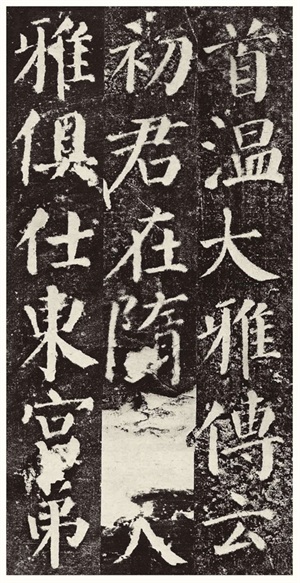 首溫大雅傳云
初君在隋大
雅俱仕東宮弟